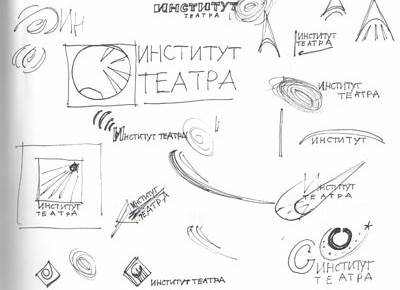 ИН
ИНСТИТУТ
ТЕАТРА
ИНСТИТУТ
ТЕАТРА
ИНСТИТУТ
ТЕАТРА
ИНСТИТУТ
ТЕАТРА
ИНСТИТУТ ТЕАТРА
ИНСТИТУТ
ИНСТИТУТ
ТЕАТРА
ИНСТИТУТ
ТЕАТРА
ИНСТИТУТ
ТЕАТРА
ИНСТИТУТ
ТЕАТРА
ИНСТИТУТ ТЕАТРА